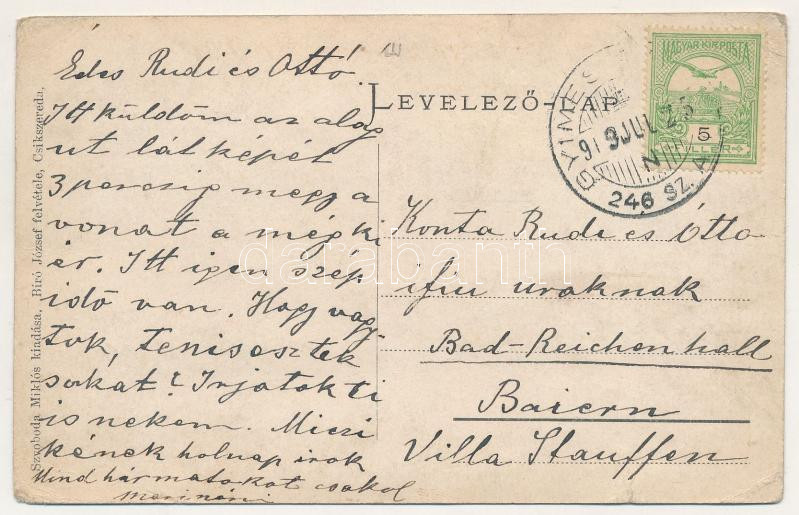 Édes Rudi és Ottó
Itt küldöm az alag
ut látképét
3 perczig meg a
vonat a míg ki
ér. Itt igen szép
idő van. Hogy vagy
tok, teniseztek
sokat? Irjatok ti
is nekem. Miczi
kének holnap irok
Mind hármatokat csokol
Mari néni
LEVELEZŐ-LAP
MAGYAR KIR. POSTA
5
FILLÉR
GYIMES
913 JUL 25
N
246 SZ. A
Konta Rudi és Ottó
ifiu uraknak
Bad-Reichenhall
Baiern
Villa Stauffen
Szvoboda Miklós kiadása, Biró József felvétele, Csikszereda.
darabanth